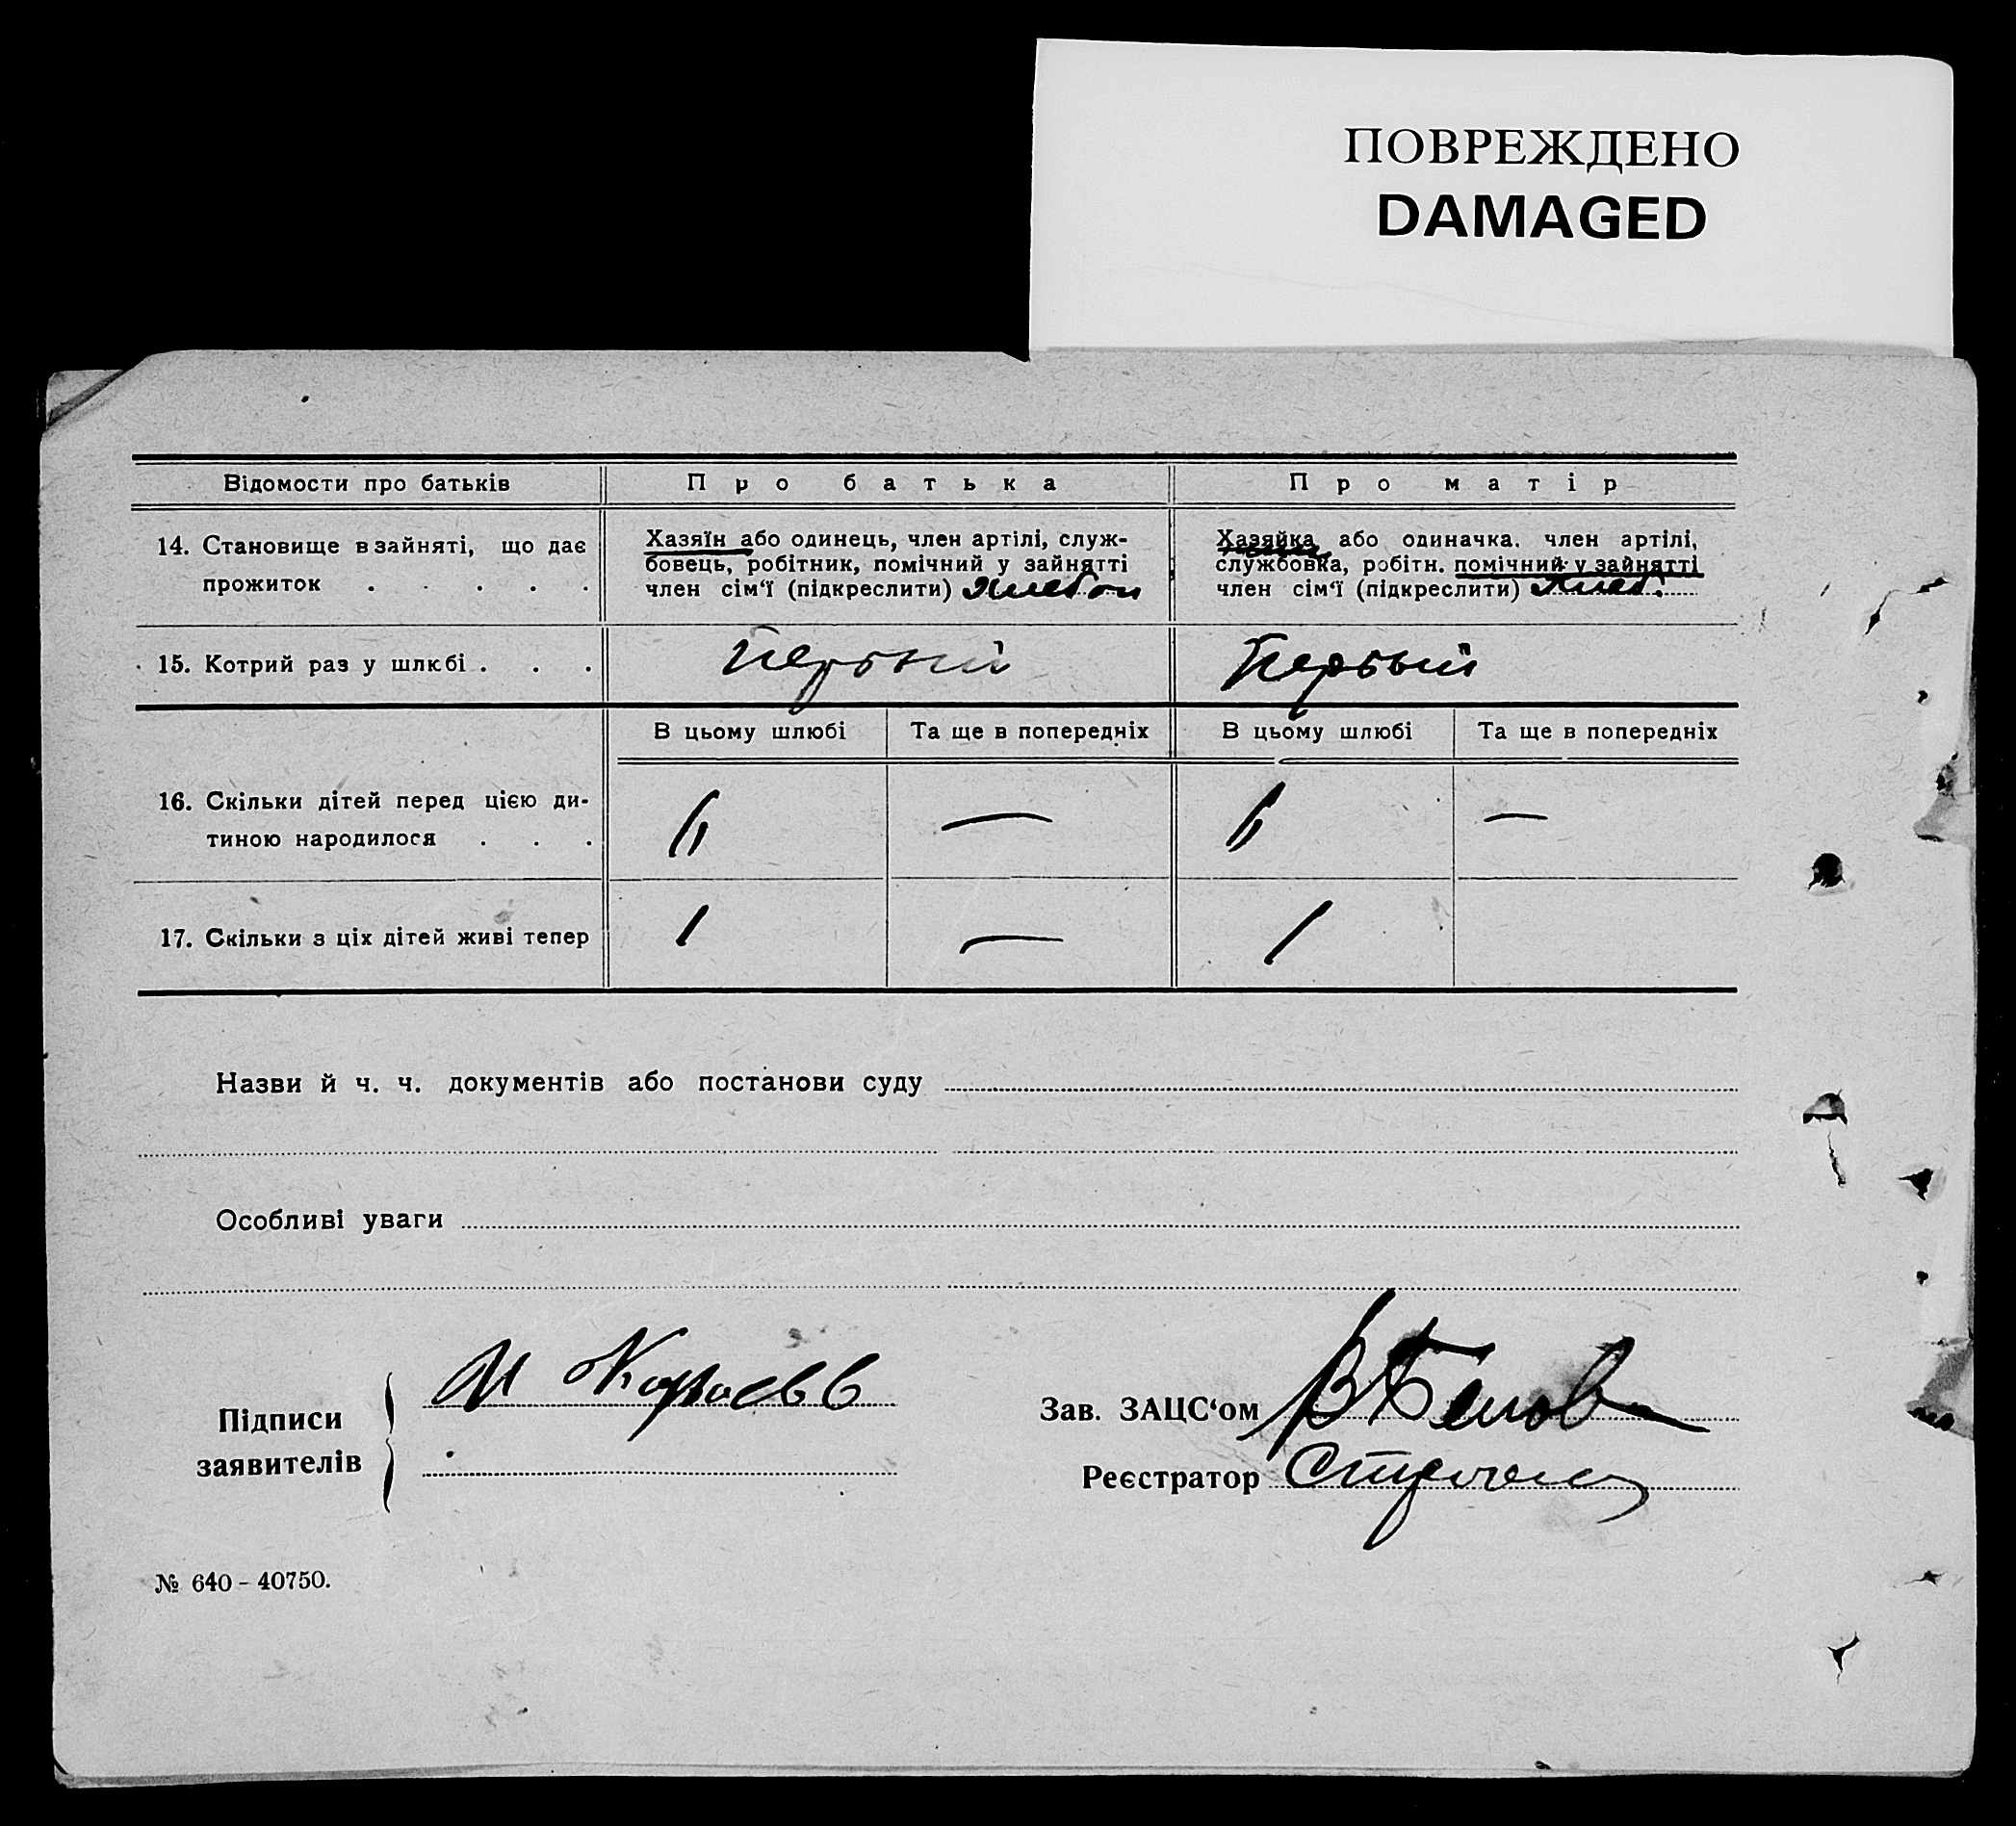 ПОВРЕЖДЕНО
DAMAGED
Відомости про батьків
Про батька
Про матір
14. Становище в зайняті, що дає
прожиток . . . . .
Хазяїн або одинець, член артілі, служ-
бовець, робітник, помічний у зайнятті
член сім'ї (підкреслити)
Хазяйка або одиначка, член артілі,
службовка, робітн. помічний у зайнятті
член сім'ї (підкреслити)
15. Котрий раз у шлюбі . . .
Первый
Первый
В цьому шлюбі
Та ще в попередніх
В цьому шлюбі
Та ще в попередніх
16. Скільки дітей перед цією ди-
тиною народилося . . .
—
—
17. Скільки з ціх дітей живі тепер
1
—
1
Назви й ч. ч. документів або постанови суду
Особливі уваги
Підписи
заявителів
Зав. ЗАЦС‘ом
Реєстратор
№ 640 - 40750.